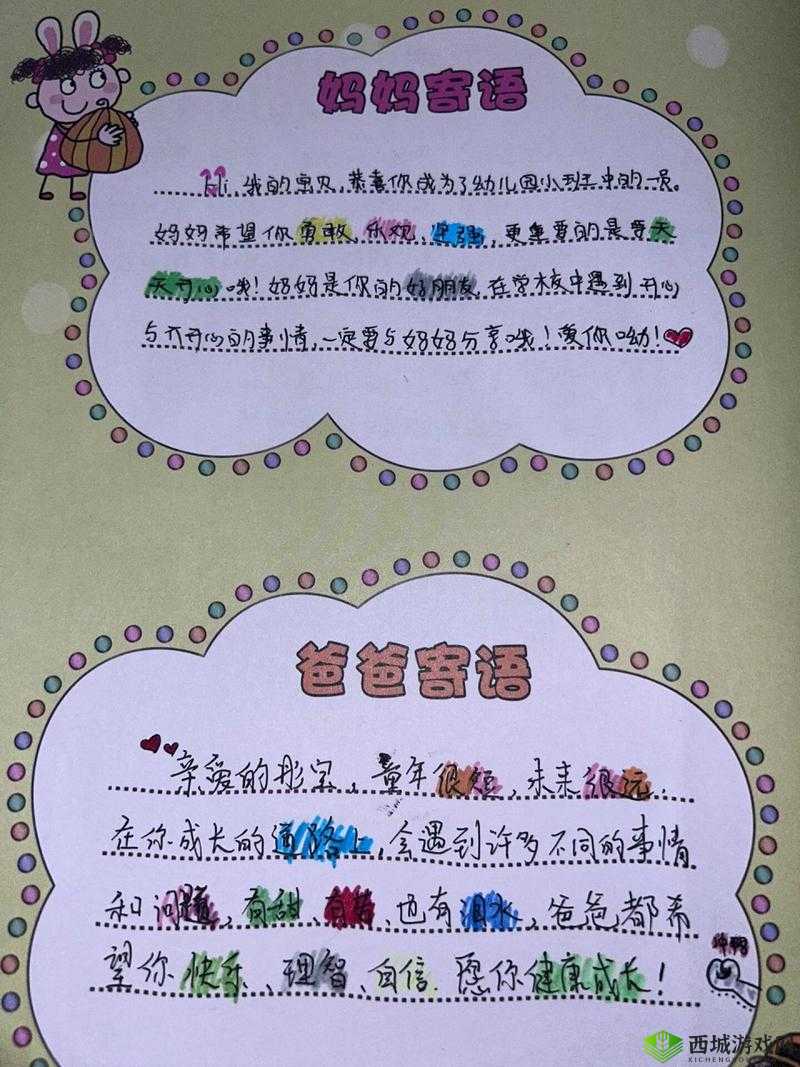 妈妈寄语
Hi 我的宝贝,恭喜你成为了幼儿园小班中的一员。
妈妈希望你勇敢,乐观,坚强,更重要的是要天
天开心哦!妈妈是你的好朋友,在学校中遇到开心
与不开心的事情,一定要与妈妈分享哦!爱你呦!
爸爸寄语
亲爱的彤宝,童年很短,未来很远.
在你成长的道路上,会遇到许多不同的事情
和问题,有甜、有苦、也有泪水,爸爸都希
望你快乐、理智、自信.愿你健康成长!
西城游戏
XICHENG